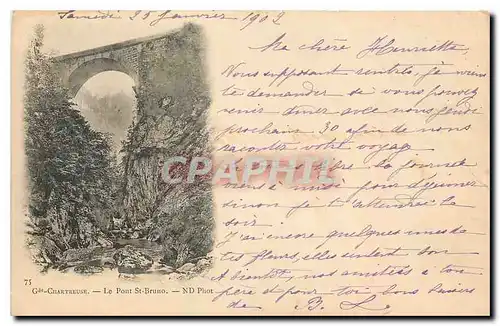 Samedi 25 janvier 1902
Ma chère Henriette
Vous supposant rentrée, je viens
te demander si vous pouvez
venir dîner avec nous jeudi
prochain 30 afin de nous
raconter votre voyage
CPARAMA
la journée
pour déjeuner
sinon je t'attendrai le
soir.
J'ai encore quelques unes de
tes fleurs, elles sentent bon
A bientôt, nos amitiés à ton
père et pour toi bons baisers
de B. L.
75
Gde-Chartreuse. — Le Pont St-Bruno. — ND Phot